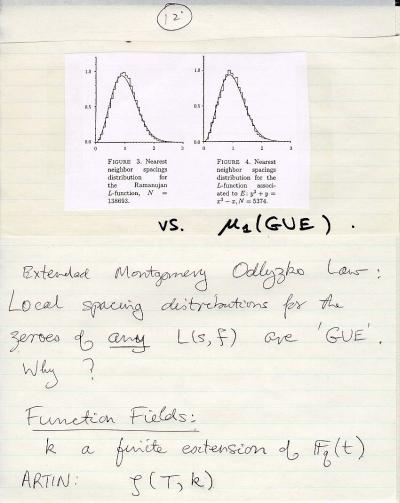 12
1.0
0.5
0.0
0 1 2 3
1.0
0.5
0.0
0 1 2 3
FIGURE 3. Nearest
neighbor spacings
distribution for
the Ramanujan
L-function, N =
138693.
FIGURE 4. Nearest
neighbor spacings
distribution for the
L-function associ-
ated to E: y² + y =
x³ − x, N = 5374.
vs. μ₁(GUE).
Extended Montgomery Odlyzko Law:
Local spacing distributions for the
zeroes of any L(s, f) are 'GUE'.
Why ?
Function Fields:
k a finite extension of 𝔽q(t)
ARTIN: ζ(T, k)